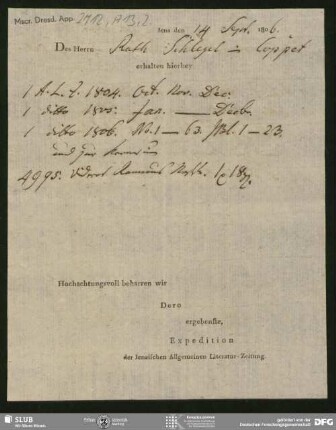 Mscr. Dresd. App. 2712, A13, 2.
Jena den 14 Sept. 1806.
Des Herrn Rath Schlegel in Coppet
erhalten hierbey
1 A. L. Z. 1804. Oct. Nov. Dec.
1 ditto 1805. Jan. — Decbr.
1 ditto 1806. No. 1 — 63. 1 — 23.
und zur
4995.
Hochachtungsvoll beharren wir
Dero
ergebenste,
Expedition
der Jenaischen Allgemeinen Literatur-Zeitung.
SLUB
Wir führen Wissen.
gefördert von der
Deutschen Forschungsgemeinschaft
DFG